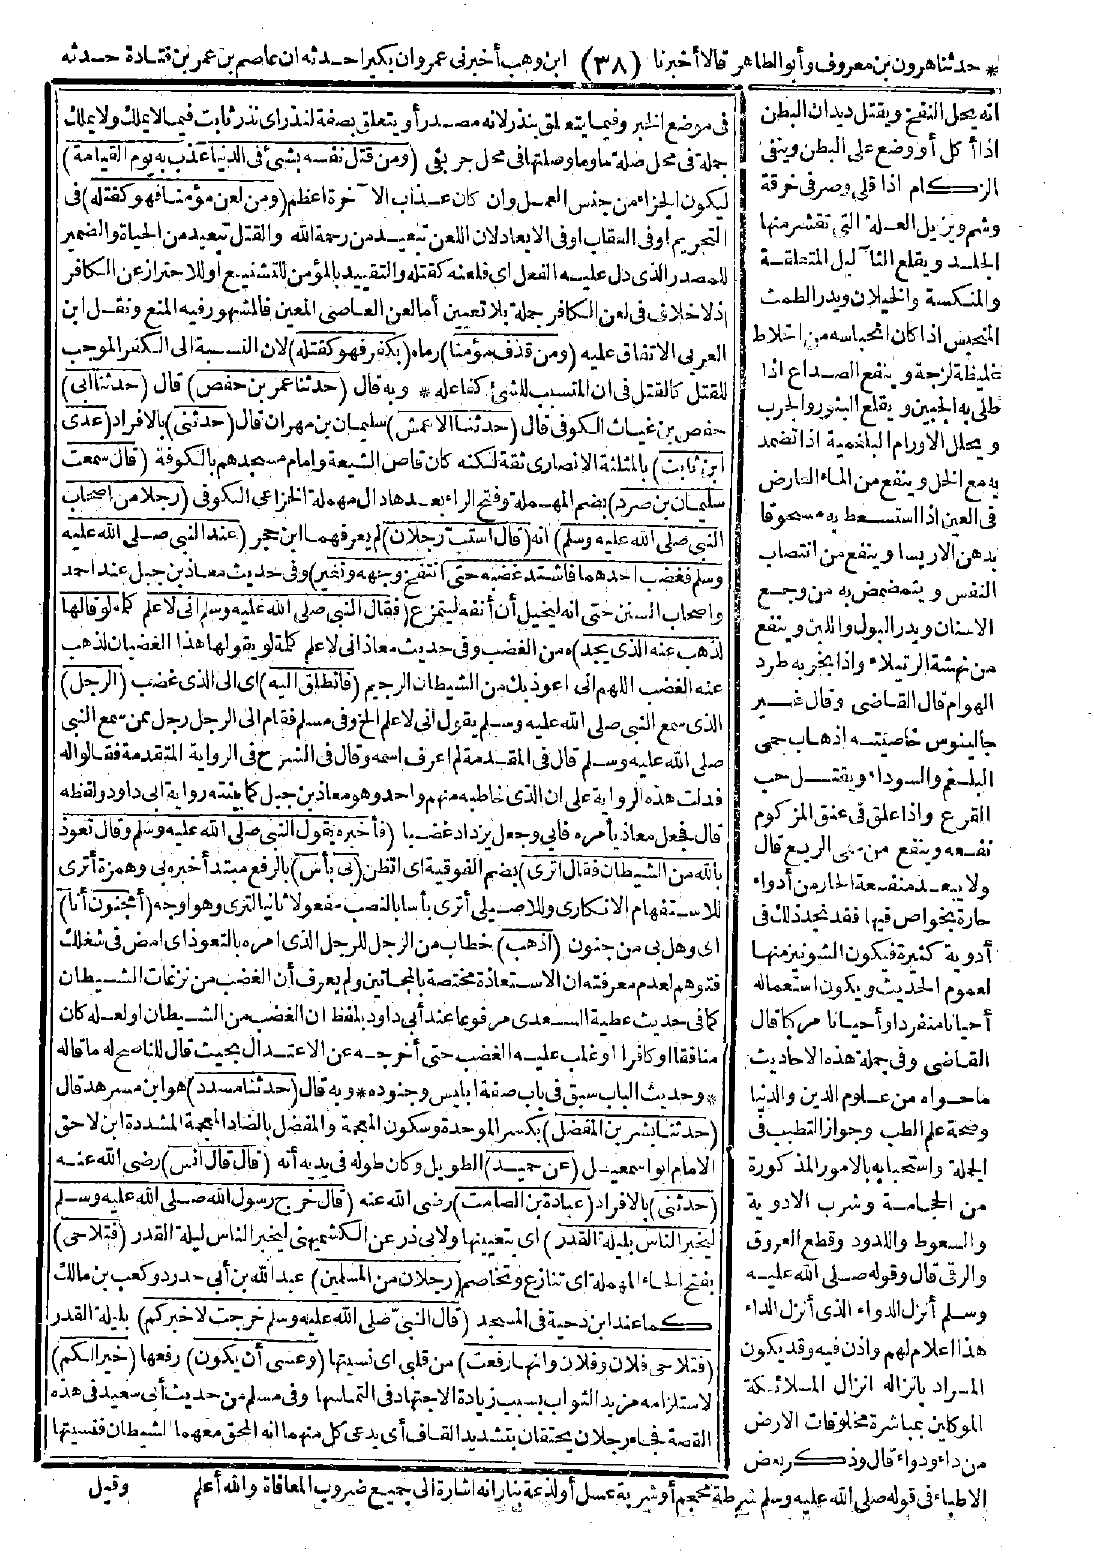 * حدثنا هرون بن معروف وأبو الطاهر قالا أخبرنا (٣٨) ابن وهب أخبرنى عمرو ان بكيرا حدثه ان عاصم بن عمر بن قتادة حدثه
فى موضع الخبر وفيما يتعلق بنذر لانه مصدر أو يتعلق بصفة لنذر اى نذر ثابت فيما لا يملك ولا يملك
جملة فى محل صلة ما وما وصلتها فى محل جر بفى (ومن قتل نفسه بشئ فى الدنيا عذب به يوم القيامة)
ليكون الجزاء من جنس العمل وان كان عذاب الا خرة اعظم (ومن لعن مؤمنا فهو كقتله) فى
التحريم او فى العقاب او فى الابعاد لان اللعن تبعيد من رحمة الله والقتل تبعيد من الحياة والضمير
للمصدر الذى دل عليه الفعل اى فلعنه كقتله والتقييد بالمؤمن للتشنيع او للاحتراز عن الكافر
اذ لا خلاف فى لعن الكافر جملة بلا تعيين أما لعن العاصى المعين فالمشهور فيه المنع ونقل ابن
العربى الاتفاق عليه (ومن قذف مؤمنا) رماه (بكفر فهو كقتله) لان النسبة الى الكفر الموجب
للقتل كالقتل فى ان المتسبب للشئ كفاعله * وبه قال (حدثنا عمر بن حفص) قال (حدثنا أبى)
حفص بن غياث الكوفى قال (حدثنا الاعمش) سليمان بن مهران قال (حدثنى) بالافراد (عدى
ابن ثابت) بالمثلثة الانصارى ثقة لكنه كان قاص الشيعة وامام مسجدهم بالكوفة (قال سمعت
سليمان بن صرد) بضم المهملة وفتح الراء بعدها دال مهملة الخزاعى الكوفى (رجلا من اصحاب
النبى صلى الله عليه وسلم) انه (قال استب رجلان) لم يعرفهما ابن حجر (عند النبى صلى الله عليه
وسلم فغضب احدهما فاشتد غضبه حتى انتفخ وجهه وتغير) وفى حديث معاذ بن جبل عند احمد
واصحاب السنن حتى انه ليخيل أن أنفه ليتمزع (فقال النبى صلى الله عليه وسلم انى لاعلم كلمة لو قالها
لذهب عنه الذى يجد) ه من الغضب وفى حديث معاذ انى لاعلم كلمة لو يقولها هذا الغضبان لذهب
عنه الغضب اللهم انى اعوذ بك من الشيطان الرجيم (فانطلق اليه) اى الى الذى غضب (الرجل)
الذى سمع النبى صلى الله عليه وسلم يقول انى لاعلم الخ وفى مسلم فقام الى الرجل رجل ممن سمع النبى
صلى الله عليه وسلم قال فى المقدمة لم اعرف اسمه وقال فى الشرح فى الرواية المتقدمة فقالوا له
فدلت هذه الرواية على ان الذى خاطبه منهم واحد وهو معاذ بن جبل كما بينته رواية ابى داود ولفظه
قال فجعل معاذ يأمره فابى وجعل يزداد غضبا (فأخبره بقول النبى صلى الله عليه وسلم وقال تعوذ
بالله من الشيطان فقال اترى) بضم الفوقية اى اتظن (بى بأس) بالرفع مبتدأ خبره بى وهمزة أترى
للاستفهام الانكارى وللاصيلى أترى بأسا بالنصب مفعولا ثانيا لترى وهو اوجه (أمجنون أنا)
اى وهل بى من جنون (اذهب) خطاب من الرجل للرجل الذى امره بالتعوذ اى امض فى شغلك
فتوهم لعدم معرفته ان الاستعاذة مختصة بالمجانين ولم يعرف أن الغضب من نزغات الشيطان
كما فى حديث عطية السعدى مرفوعا عند أبى داود بلفظ ان الغضب من الشيطان او لعله كان
منافقا او كافرا او غلب عليه الغضب حتى أخرجه عن الاعتدال بحيث قال للناصح له ما قاله
* وحديث الباب سبق فى باب صفة ابليس وجنوده * وبه قال (حدثنا مسدد) هو ابن مسرهد قال
(حدثنا بشر بن المفضل) بكسر الموحدة وسكون المعجمة والمفضل بالضاد المعجمة المشددة ابن لاحق
الامام ابو اسمعيل (عن حميد) الطويل وكان طوله فى يديه أنه (قال قال انس) رضى الله عنه
(حدثنى) بالافراد (عبادة بن الصامت) رضى الله عنه (قال خرج رسول الله صلى الله عليه وسلم
ليخبر الناس بليلة القدر) اى بتعيينها ولابى ذر عن الكشميهنى ليخبر الناس ليلة القدر (فتلاحى)
بفتح الحاء المهملة اى تنازع وتخاصم (رجلان من المسلمين) عبد الله بن أبى حدرد وكعب بن مالك
كما عند ابن دحية فى المسجد (قال النبى صلى الله عليه وسلم خرجت لاخبركم) بليلة القدر
(فتلاحى فلان وفلان وانها رفعت) من قلبى اى نسيتها (وعسى أن يكون) رفعها (خيرا لكم)
لاستلزامه مزيد الثواب بسبب زيادة الاجتهاد فى التماسها وفى مسلم من حديث أبى سعيد فى هذه
القصة فجاء رجلان يحتقان بتشديد القاف أى يدعى كل منهما انه المحق معهما الشيطان فنسيتها
انه يحل النفخ ويقتل ديدان البطن
اذا أكل أو وضع على البطن وينفى
الزكام اذا قلى وصر فى خرقة
وشم ويزيل العلة التى تقشر منها
الجلد ويقلع الثآ ليل المتعلقة
والمنكسة والخيلان ويدر الطمث
المنحبس اذا كان انحباسه من اخلاط
غليظة لزجة وينفع الصداع اذا
طلى به الجبين ويقلع البثور والجرب
ويحلل الاورام البلغمية اذا تضمد
به مع الخل وينفع من الماء العارض
فى العين اذا استسعط به مسحوقا
بدهن الاريسا وينفع من انتصاب
النفس ويتمضمض به من وجع
الاسنان ويدر البول واللبن وينفع
من نهشة الرتيلاء واذا بخر به طرد
الهوام قال القاضى وقال غير
جالينوس خاصيته اذهاب حمى
البلغم والسوداء ويقتل حب
القرع واذا علق فى عنق المزكوم
نفعه وينفع من حمى الربع قال
ولا يبعد منفعة الحار من أدواء
حارة بخواص فيها فقد نجد ذلك فى
أدوية كثيرة فيكون الشونيز منها
لعموم الحديث ويكون استعماله
أحيانا منفردا وأحيانا مركبا قال
القاضى وفى جملة هذه الاحاديث
ما حواه من علوم الدين والدنيا
وصحة علم الطب وجواز التطبب فى
الجلة واستحبابه بالامور المذكورة
من الحجامة وشرب الادوية
والسعوط واللدود وقطع العروق
والرقى قال وقوله صلى الله عليه
وسلم أنزل الدواء الذى أنزل الداء
هذا اعلام لهم واذن فيه وقد يكون
المراد بانزاله انزال الملائكة
الموكلين بمباشرة مخلوقات الارض
من داء ودواء قال وذكر بعض
الاطباء فى قوله صلى الله عليه وسلم شرطة محجم أو شربة عسل أو لذعة بنار انه اشارة الى جميع ضروب المعافاة والله أعلم وقيل